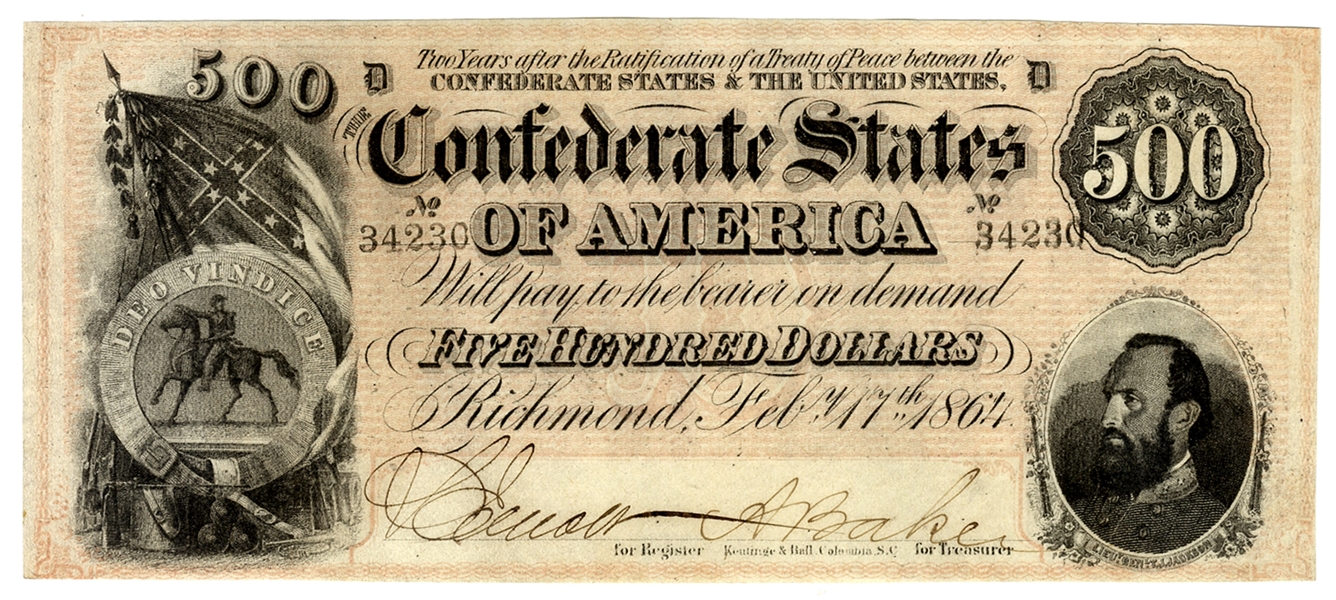 500
D
Two Years after the Ratification of a Treaty of Peace between the
CONFEDERATE STATES & THE UNITED STATES,
D
THE
Confederate States
500
No
34230
OF AMERICA
No
34230
Will pay to the bearer on demand
DEO VINDICE
FIVE HUNDRED DOLLARS
Richmond, Feby. 17th. 1864.
A Baker
for Register
Keatinge & Ball, Columbia, S.C.
for Treasurer
LIEUT. GEN. T.J. JACKSON